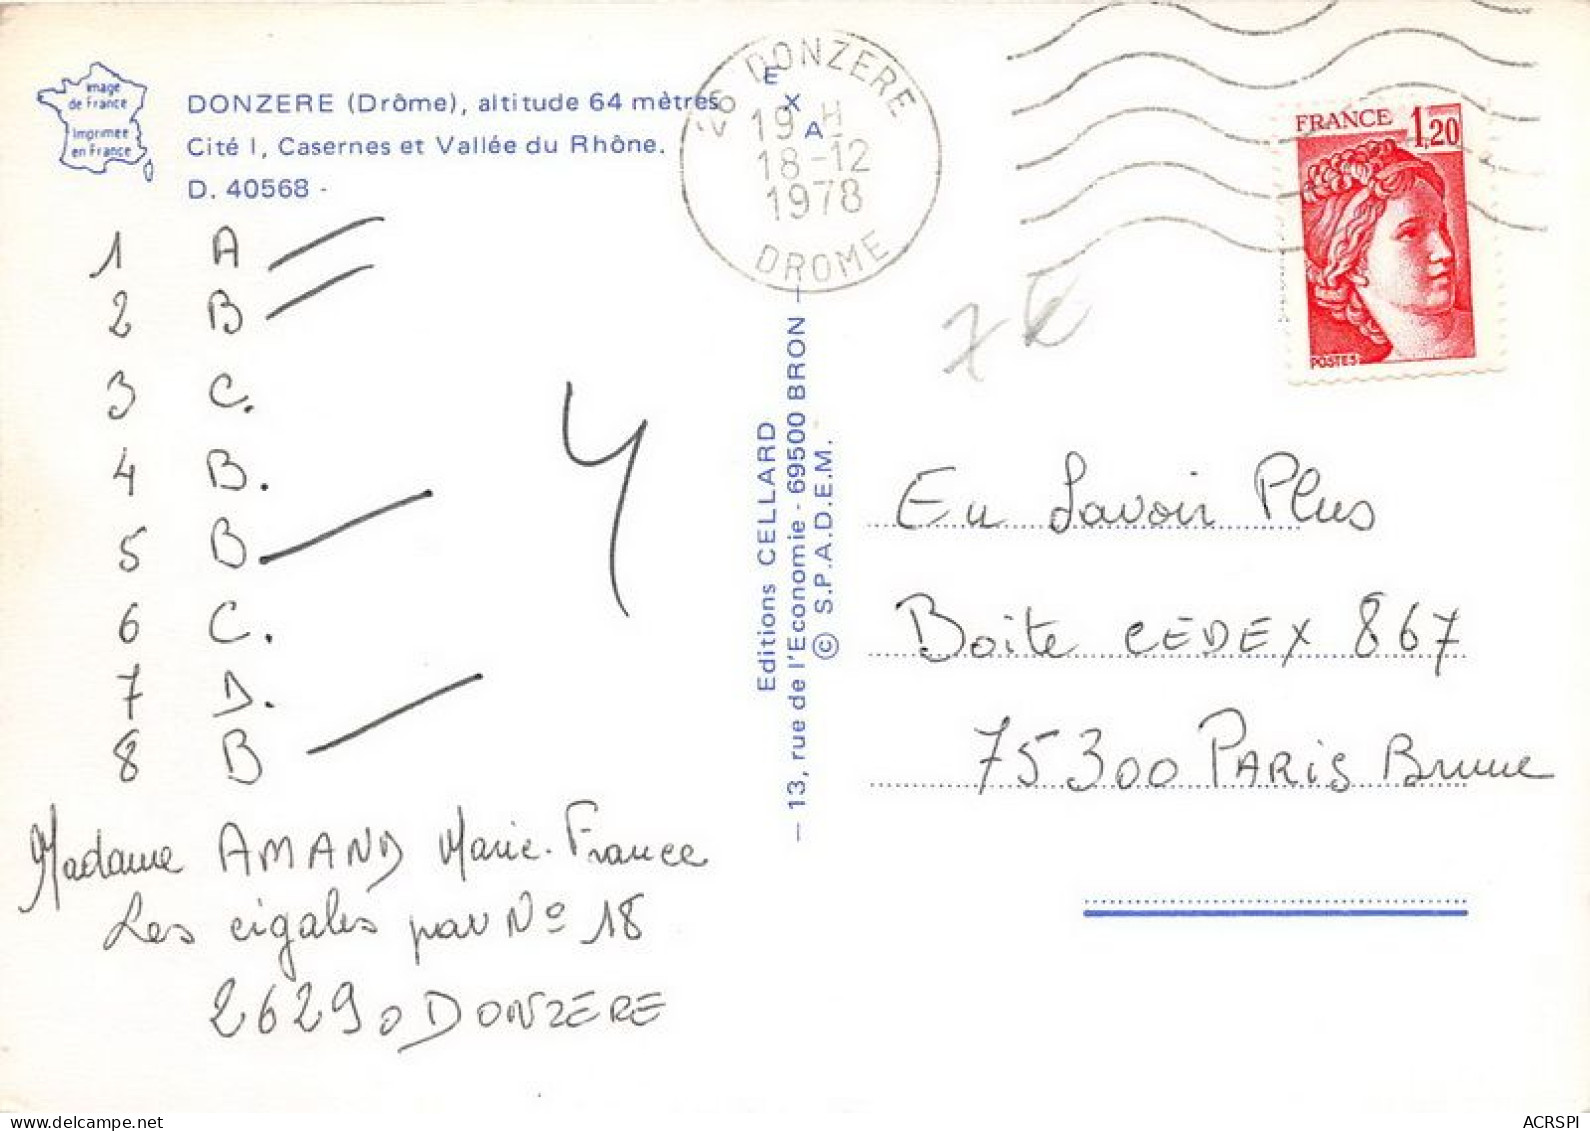 image
de France
Imprimée
en France
DONZERE (Drôme), altitude 64 mètres
Cité I, Casernes et Vallée du Rhône.
D. 40568 -
EXA
26 DONZERE
19 H
18-12
1978
DROME
FRANCE 1,20
POSTES
1 A
2 B
3 C.
4 B.
5 B
6 C.
7 D.
8 B
4
Madame AMAND Marie-France
Les cigales pav Nº 18
26290 DONZERE
Editions CELLARD
— 13, rue de l'Economie - 69500 BRON —
© S.P.A.D.E.M.
En Savoir Plus
Boite CEDEX 867
75300 PARIS Brune
ACRSPI